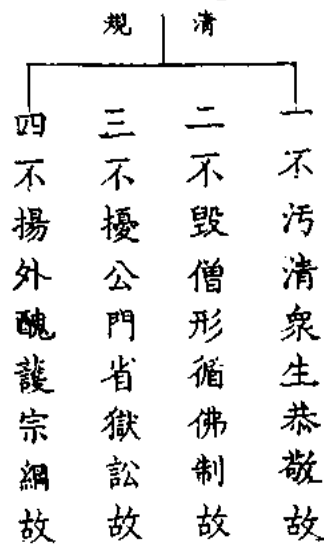 清規
一不污清衆生恭敬故
二不毀僧形循佛制故
三不擾公門省獄訟故
四不揚外醜護宗綱故